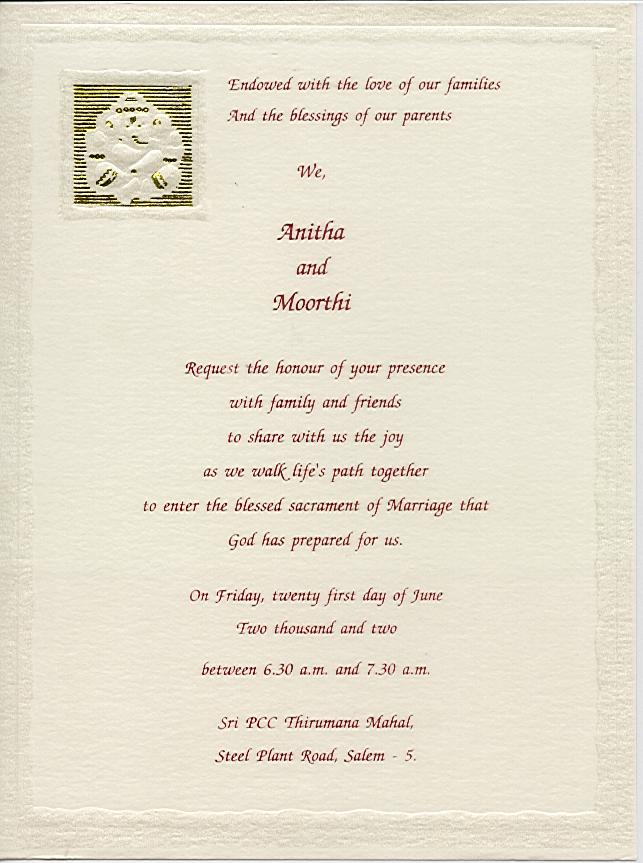 Endowed with the love of our families
And the blessings of our parents
We,
Anitha
and
Moorthi
Request the honour of your presence
with family and friends
to share with us the joy
as we walk life's path together
to enter the blessed sacrament of Marriage that
God has prepared for us.
On Friday, twenty first day of June
Two thousand and two
between 6.30 a.m. and 7.30 a.m.
Sri PCC Thirumana Mahal,
Steel Plant Road, Salem - 5.